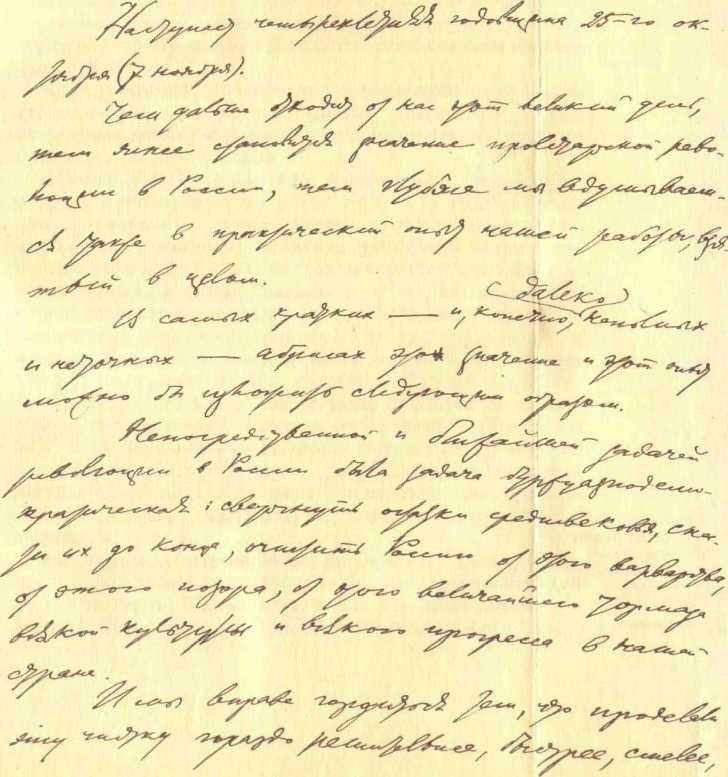 Наступает четырехлетняя годовщина 25-го ок-
тября (7 ноября).
Чем дальше отходит от нас этот великий день,
тем яснее становится значение пролетарской рево-
люции в России, тем глубже мы вдумываем-
ся также в практический опыт нашей работы, взя-
тый в целом.
далеко
В самых кратких — и, конечно, неполных
и неточных — абрисах это значение и этот опыт
можно бы изложить следующим образом.
Непосредственной и ближайшей задачей
революции в России была задача буржуазно-демо-
кратическая: свергнуть остатки средневековья, сне-
сти их до конца, очистить Россию от этого варварства,
от этого позора, от этого величайшего тормоза
всякой культуры и всякого прогресса в нашей
стране.
И мы вправе гордиться тем, что проделали
эту чистку гораздо решительнее, быстрее, смелее,